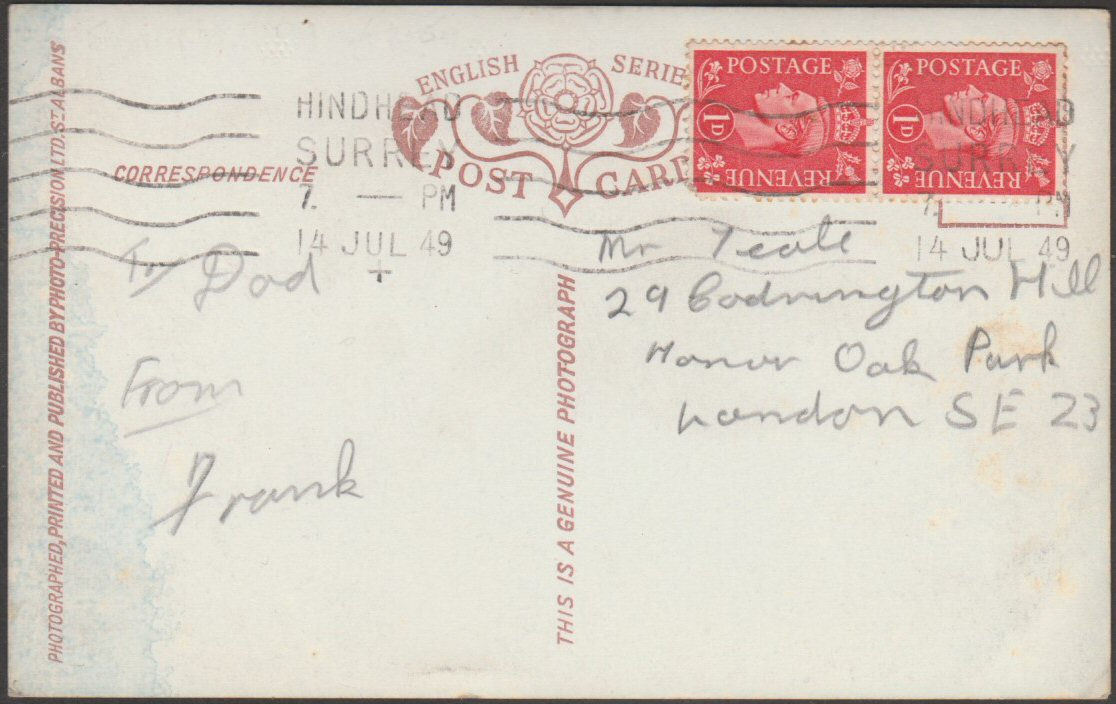 ENGLISH SERIE
POST CARD
CORRESPONDENCE
POSTAGE
1D
REVENUE
POSTAGE
1D
REVENUE
HINDHEAD
SURREY
7. — PM
14 JUL 49
HINDHEAD
SURREY
7. — PM
14 JUL 49
To Dad
From
Frank
Mr Teale
29 Codrington Hill
Honor Oak Park
London SE 23
PHOTOGRAPHED, PRINTED AND PUBLISHED BY PHOTO-PRECISION LTD. ST. ALBANS
THIS IS A GENUINE PHOTOGRAPH